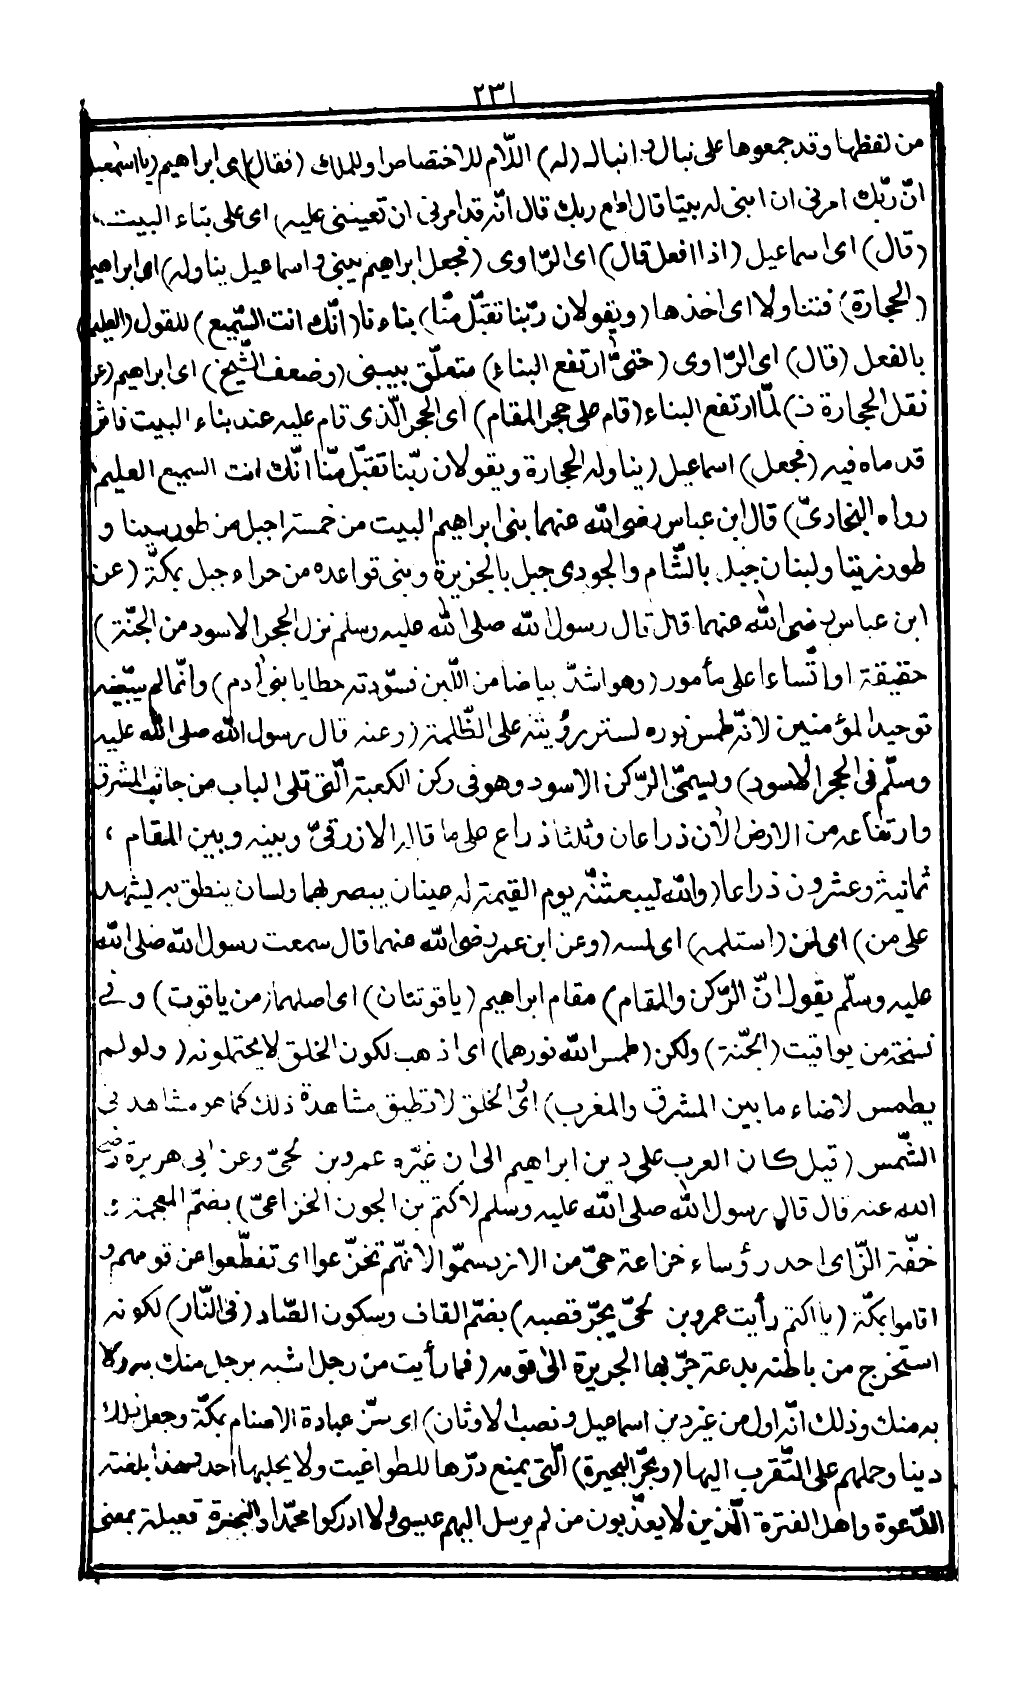 ٢٣١
من لفظها وقد جمعوها على نبال و انبال (له) اللّام للاختصاص او للملك (فقال) اى ابراهيم (يا اسمعيل
انّ ربّك امرنى ان ابنى له بيتا قال اطع ربك قال انّه قد امرنى ان تعيننى عليه) اى على بناء البيت
(قال) اى اسماعيل (اذا افعل قال) اى الرّاوى (فجعل ابراهيم يبنى و اسماعيل يناوله) اى ابراهيم
(الحجارة) فتناولا اى اخذها (ويقولان ربّنا تقبّل منّا) بناءنا (انّك انت السّميع) للقول (العليم)
بالفعل (قال) اى الرّاوى (حتىّ ارتفع البناء) متعلّق بيبنى (وضعف الشّيخ) اى ابراهيم (عن
نقل الحجارة ف) لمّا ارتفع البناء (قام على حجر المقام) اى الحجر الّذى قام عليه عند بناء البيت فاثر
قدماه فيه (فجعل) اسماعيل (يناوله الحجارة ويقولان ربّنا تقبّل منّا انّك انت السميع العليم
رواه البخاريّ) قال ابن عباس رضى الله عنهما بنى ابراهيم البيت من خمسة اجبل من طور سينا و
طور زيتا ولبنان جبل بالشّام والجودى جبل بالجزيرة وبنى قواعده من حراء جبل بمكّة (عن
ابن عباس رضى الله عنهما قال قال رسول الله صلى الله عليه وسلم نزل الحجر الاسود من الجنّة)
حقيقة او اتّساعا على مأمور (وهو اشدّ بياضا من اللّبن فسوّدته خطايا بنى ادم) وانّما لم يبيّضه
توحيد المؤمنين لانّه طمس نوره لستر رؤيته على الظّلمة (وعنه قال رسول الله صلى الله عليه
وسلّم فى الحجر الاسود) ويسمىّ الرّكن الاسود وهو فى ركن الكعبة الّتى تلى الباب من جانب المشرق
وارتفاعه من الارض الآن ذراعان وثلثا ذراع على ما قاله الازرقىّ وبينه وبين المقام
ثمانية وعشرون ذراعا (والله ليبعثنّه يوم القيمة له عينان يبصر بهما ولسان ينطق به ليشهد
على من) اى لمن (استلمه) اى لمسه (وعن ابن عمر رضى الله عنهما قال سمعت رسول الله صلى الله
عليه وسلّم يقول انّ الرّكن والمقام) مقام ابراهيم (ياقوتتان) اى اصلهما من ياقوت) و فى
نسخة من يواقيت (الجنّة) ولكن (طمس الله نورهما) اى اذهب لكون الخلق لا يحتملونه (ولو لم
يطمس لاضاء ما بين المشرق والمغرب) اى الخلق لا تطيق مشاهدة ذلك كما هو مشاهد فى
الشّمس (قيل كان العرب على دين ابراهيم الى ان غيّره عمرو بن لحىّ وعن ابى هريرة رضى
الله عنه قال قال رسول الله صلى الله عليه وسلم لاكثم بن الجون الخزاعىّ) بضمّ المعجمة و
خفّة الزّاى احد رؤساء خزاعة حىّ من الازد سمّوا لانّهم تخزّعوا اى تقطّعوا عن قومهم و
اقاموا بمكّة (يا اكثم رأيت عمرو بن لحىّ يجرّ قصبه) بضمّ القاف وسكون الصّاد (فى النّار) لكونه
استخرج من باطنه بدعة جرّ بها الجريرة الى قومه (فما رأيت من رجل اشبه برجل منك به ولا
به منك وذلك انّه اول من غيّر دين اسماعيل ونصب الاوثان) اى سنّ عبادة الاصنام بمكّة وجعل ذلك
دينا وحملهم على التّقرب اليها (وبحّر البحيرة) الّتى يمنع درّها للطواغيت ولا يحلبها احد فهذا بلغته
الدّعوة واهل الفترة الّذين لا يعذّبون من لم يرسل اليهم عيسى ولا ادركوا محمّدا والبحيرة فعيلة بمعنى